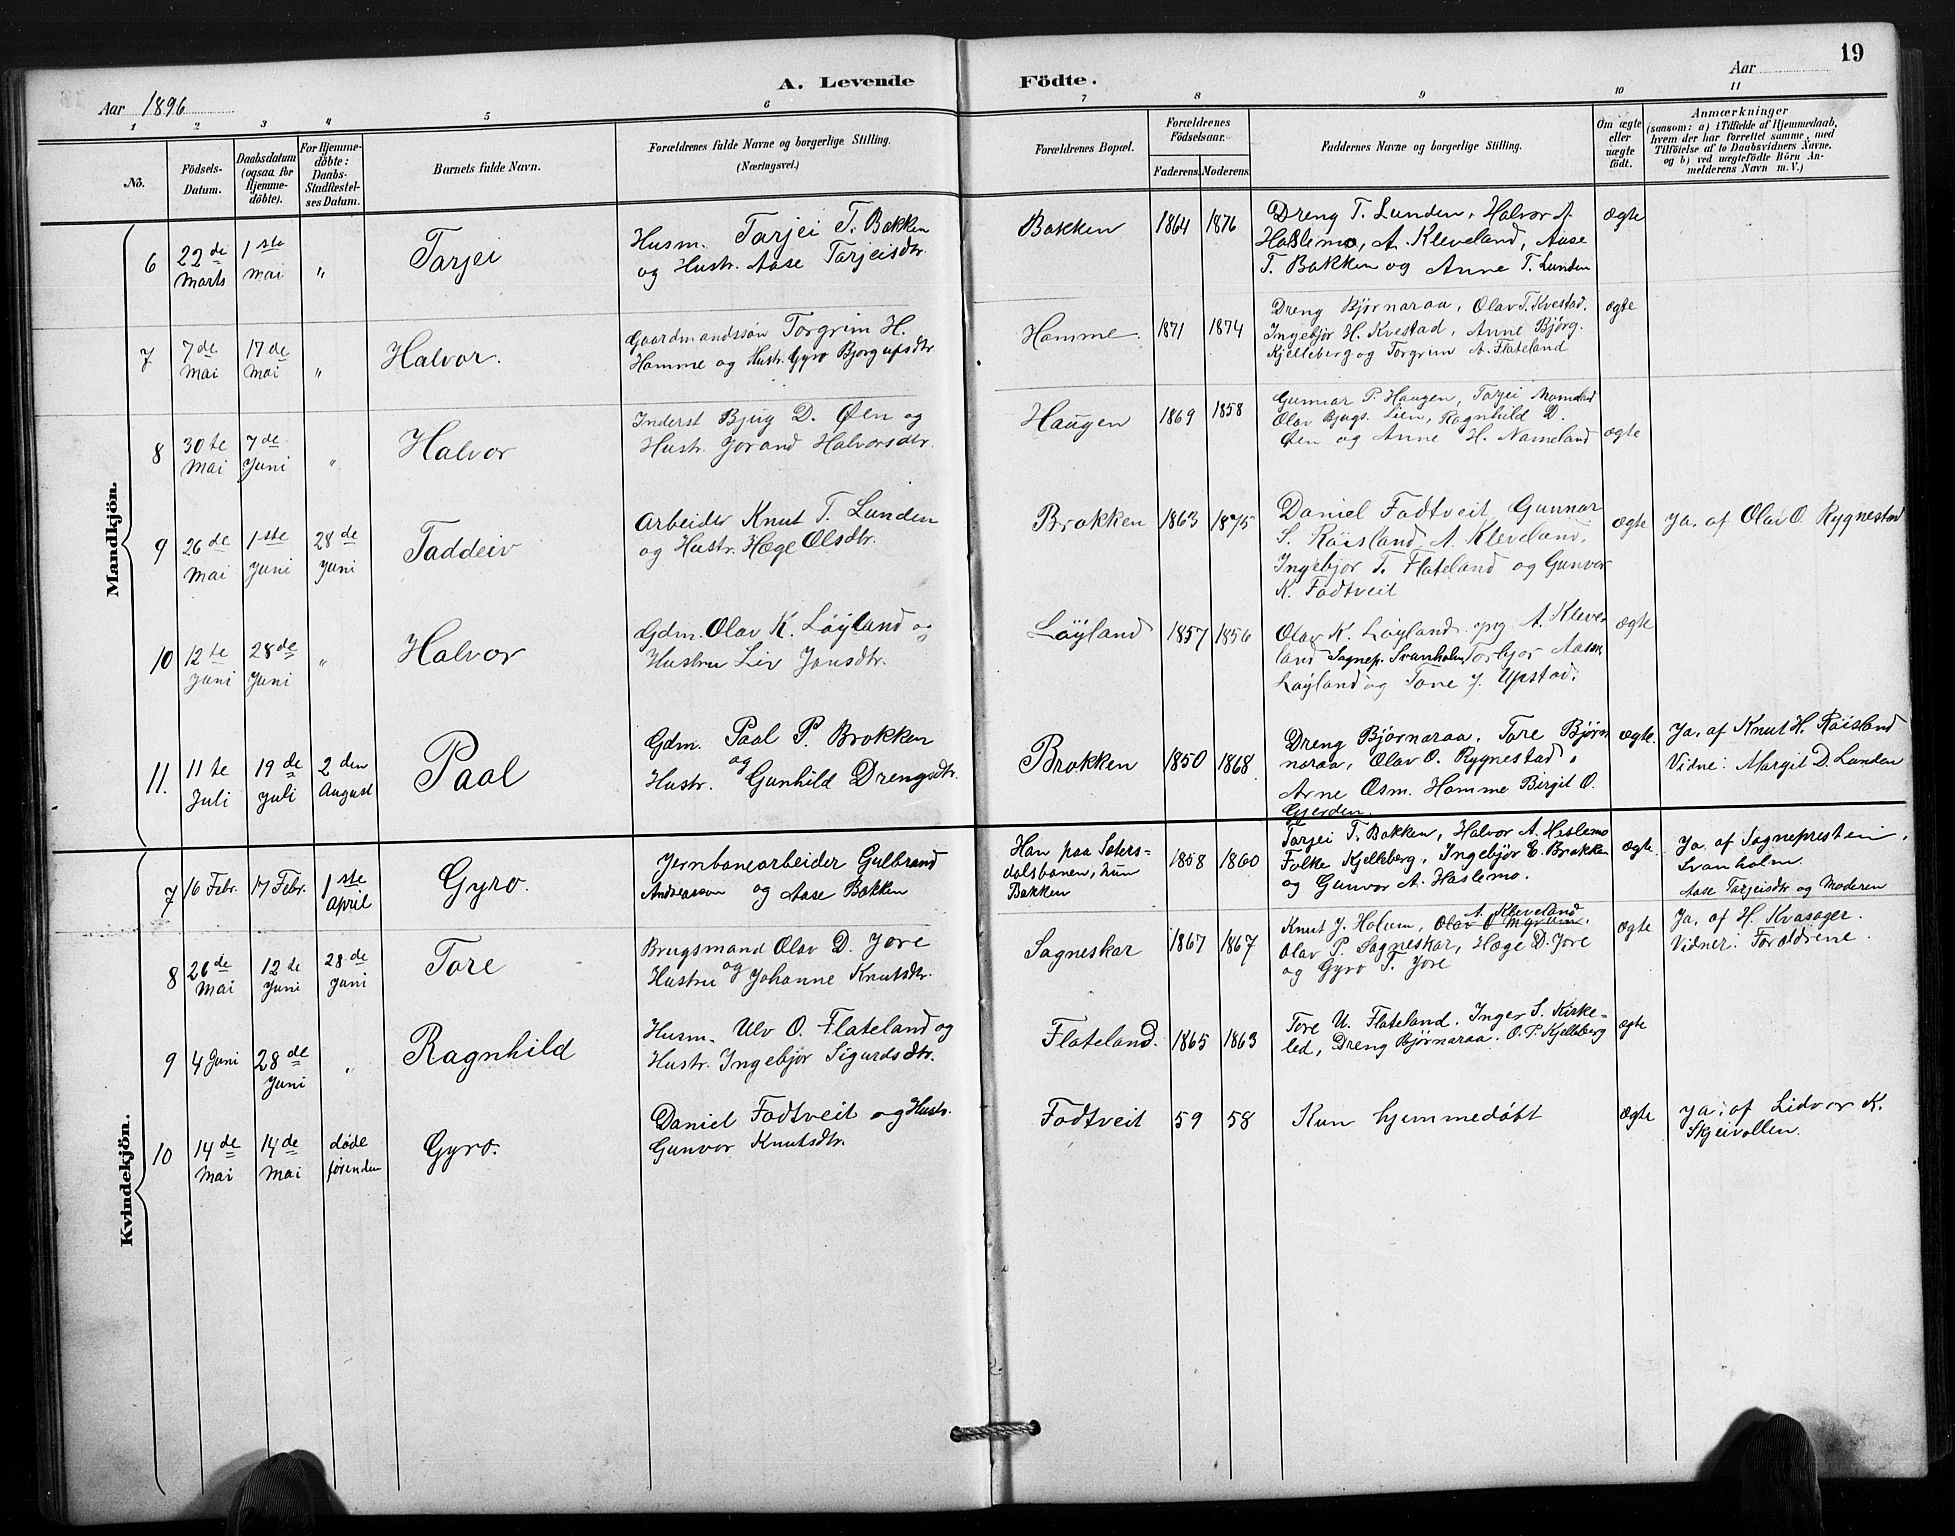 19
A. Levende Födte.
Aar 1896
Aar
1 2 3 4 5 6 7 8 9 10 11
No.
Födsels-
Datum.
Daabsdatum
(ogsaa for
Hjemme-
døbte).
For Hjemme-
döbte:
Daabs-
Stadfæstel-
ses Datum.
Barnets fulde Navn.
Forældrenes fulde Navne og borgerlige Stilling.
(Næringsvei.)
Forældrenes Bopæl.
Forældrenes
Födselsaar.
Faderens. Moderens.
Faddernes Navne og borgerlige Stilling.
Om ægte
eller
uægte
födt.
Anmærkninger
(saasom: a) i Tilfælde af Hjemmedaab,
hvem der har forrettet samme, med
Tilföielse af to Daabsvidners Navne.
og b) ved uægtefödte Börn An-
melderens Navn m.V.)
Mandkjön.
6
22de
Marts
1ste
Mai
"
Tarjei
Husm. Tarjei T. Bakken
og Hustr. Aase Tarjeisdtr.
Bakken
1864 1876
Dreng T. Lunden, Halvor A.
Haslemo, A. Kleveland, Aase
T. Bakken og Anne T. Lunden
ægte
7
7de
Mai
17de
Mai
"
Halvor.
Gaardmandssön Torgrim H.
Homme og Hustr. Gyro Bjorgufsdtr
Homme.
1871 1874
Dreng Bjørnaraa, Olav T. Kvestad,
Ingebjør H. Kvestad, Anne Bjørg.
Kjelleberg og Torgrim A. Flateland
ægte
8
30te
Mai
7de
Juni
"
Halvor
Inderst Bjug D. Øen og
Hustr. Jorand Halvorsdtr.
Haugen
1869 1858
Gunnar P. Haugen, Tarjei Nomeland
Olav Bjugs. Lien, Ragnhild D.
Øen og Anne H. Nomeland
ægte
9
26de
Mai
1ste
Juni
28de
Juni
Taddeiv
Arbeider Knut T. Lunden
og Hustr. Hæge Olsdtr.
Brokken
1863 1875
Daniel Fodtveit, Gunnar
S. Røisland, A. Kleveland,
Ingebjor T. Flateland og Gunvor
K. Fodtveit
ægte
Ja, af Olav O. Rygnestad
10
12te
Juni
28de
Juni
"
Halvor
Gdm. Olav K. Løyland og
Hustru Liv Jonsdtr.
Løyland
1857 1856
Olav K. Løyland yng. A. Kleve
land Sognep. Svanholm, Torbjor Aasm.
Løyland og Tone J. Upstad.
ægte
11.
11te
Juli
19de
Juli
2den
August
Paal
Gdm. Paal P. Brokken
og
Hustr. Gunhild Drengsdtr.
Brokken
1850 1868.
Dreng Bjørnaraa, Tore Bjørn
naraa, Olav O. Rygnestad,
Arne Osm. Homme Birgit O.
Gjerden.
ægte.
Ja, af Knut H. Røisland
Vidne: Margit D. Lunden
Kvindekjön.
7
16 Febr.
17 Febr.
1ste
April
Gyro.
Jernbanearbeider Gulbrand
Andreasson og Aase Bakken
Han paa Sæters-
dalsbanen, hun
Bakken
1858 1860
Tarjei T. Bakken, Halvor A. Heslemo
Folke Kjelleberg, Ingebjør E. Brokken
og Gunvor A. Haslemo.
ægte.
Ja af Sognepresten
Svanholm.
Aase Tarjeisdtr og Moderen
8
26de
Mai
12te
Juni
28de
Juni
Tore
Brugsmand Olav D. Jore
og
Hustru Johanne Knutsdtr.
Sagneskar
1867 1867
A. Kleveland,
Knut J. Holum, Olav O.
Olav P. Sagneskar, Hæge D. Jore
og Gyro T. Jore
ægte
Ja, af H. Kvasager.
Vidner: Forældrene.
9
4 Juni
28de
Juni
"
Ragnhild
Husm. Ulv O. Flateland og
Hustr. Ingebjør Sigurdsdtr.
Flateland.
1865 1863
Tore U. Flateland. Inger S. Kirke-
led, Dreng Bjørnaraa. O. P. Kjelleberg
ægte
10
14de
Mai
14de
Mai
døde
forenden
Gyro.
Daniel Fodtveit og Hustr.
Gunvor Knutsdtr.
Fodtveit
59 58
Kun hjemmedøbt
ægte
Ja, af Lidvor K.
Skjeivollen.